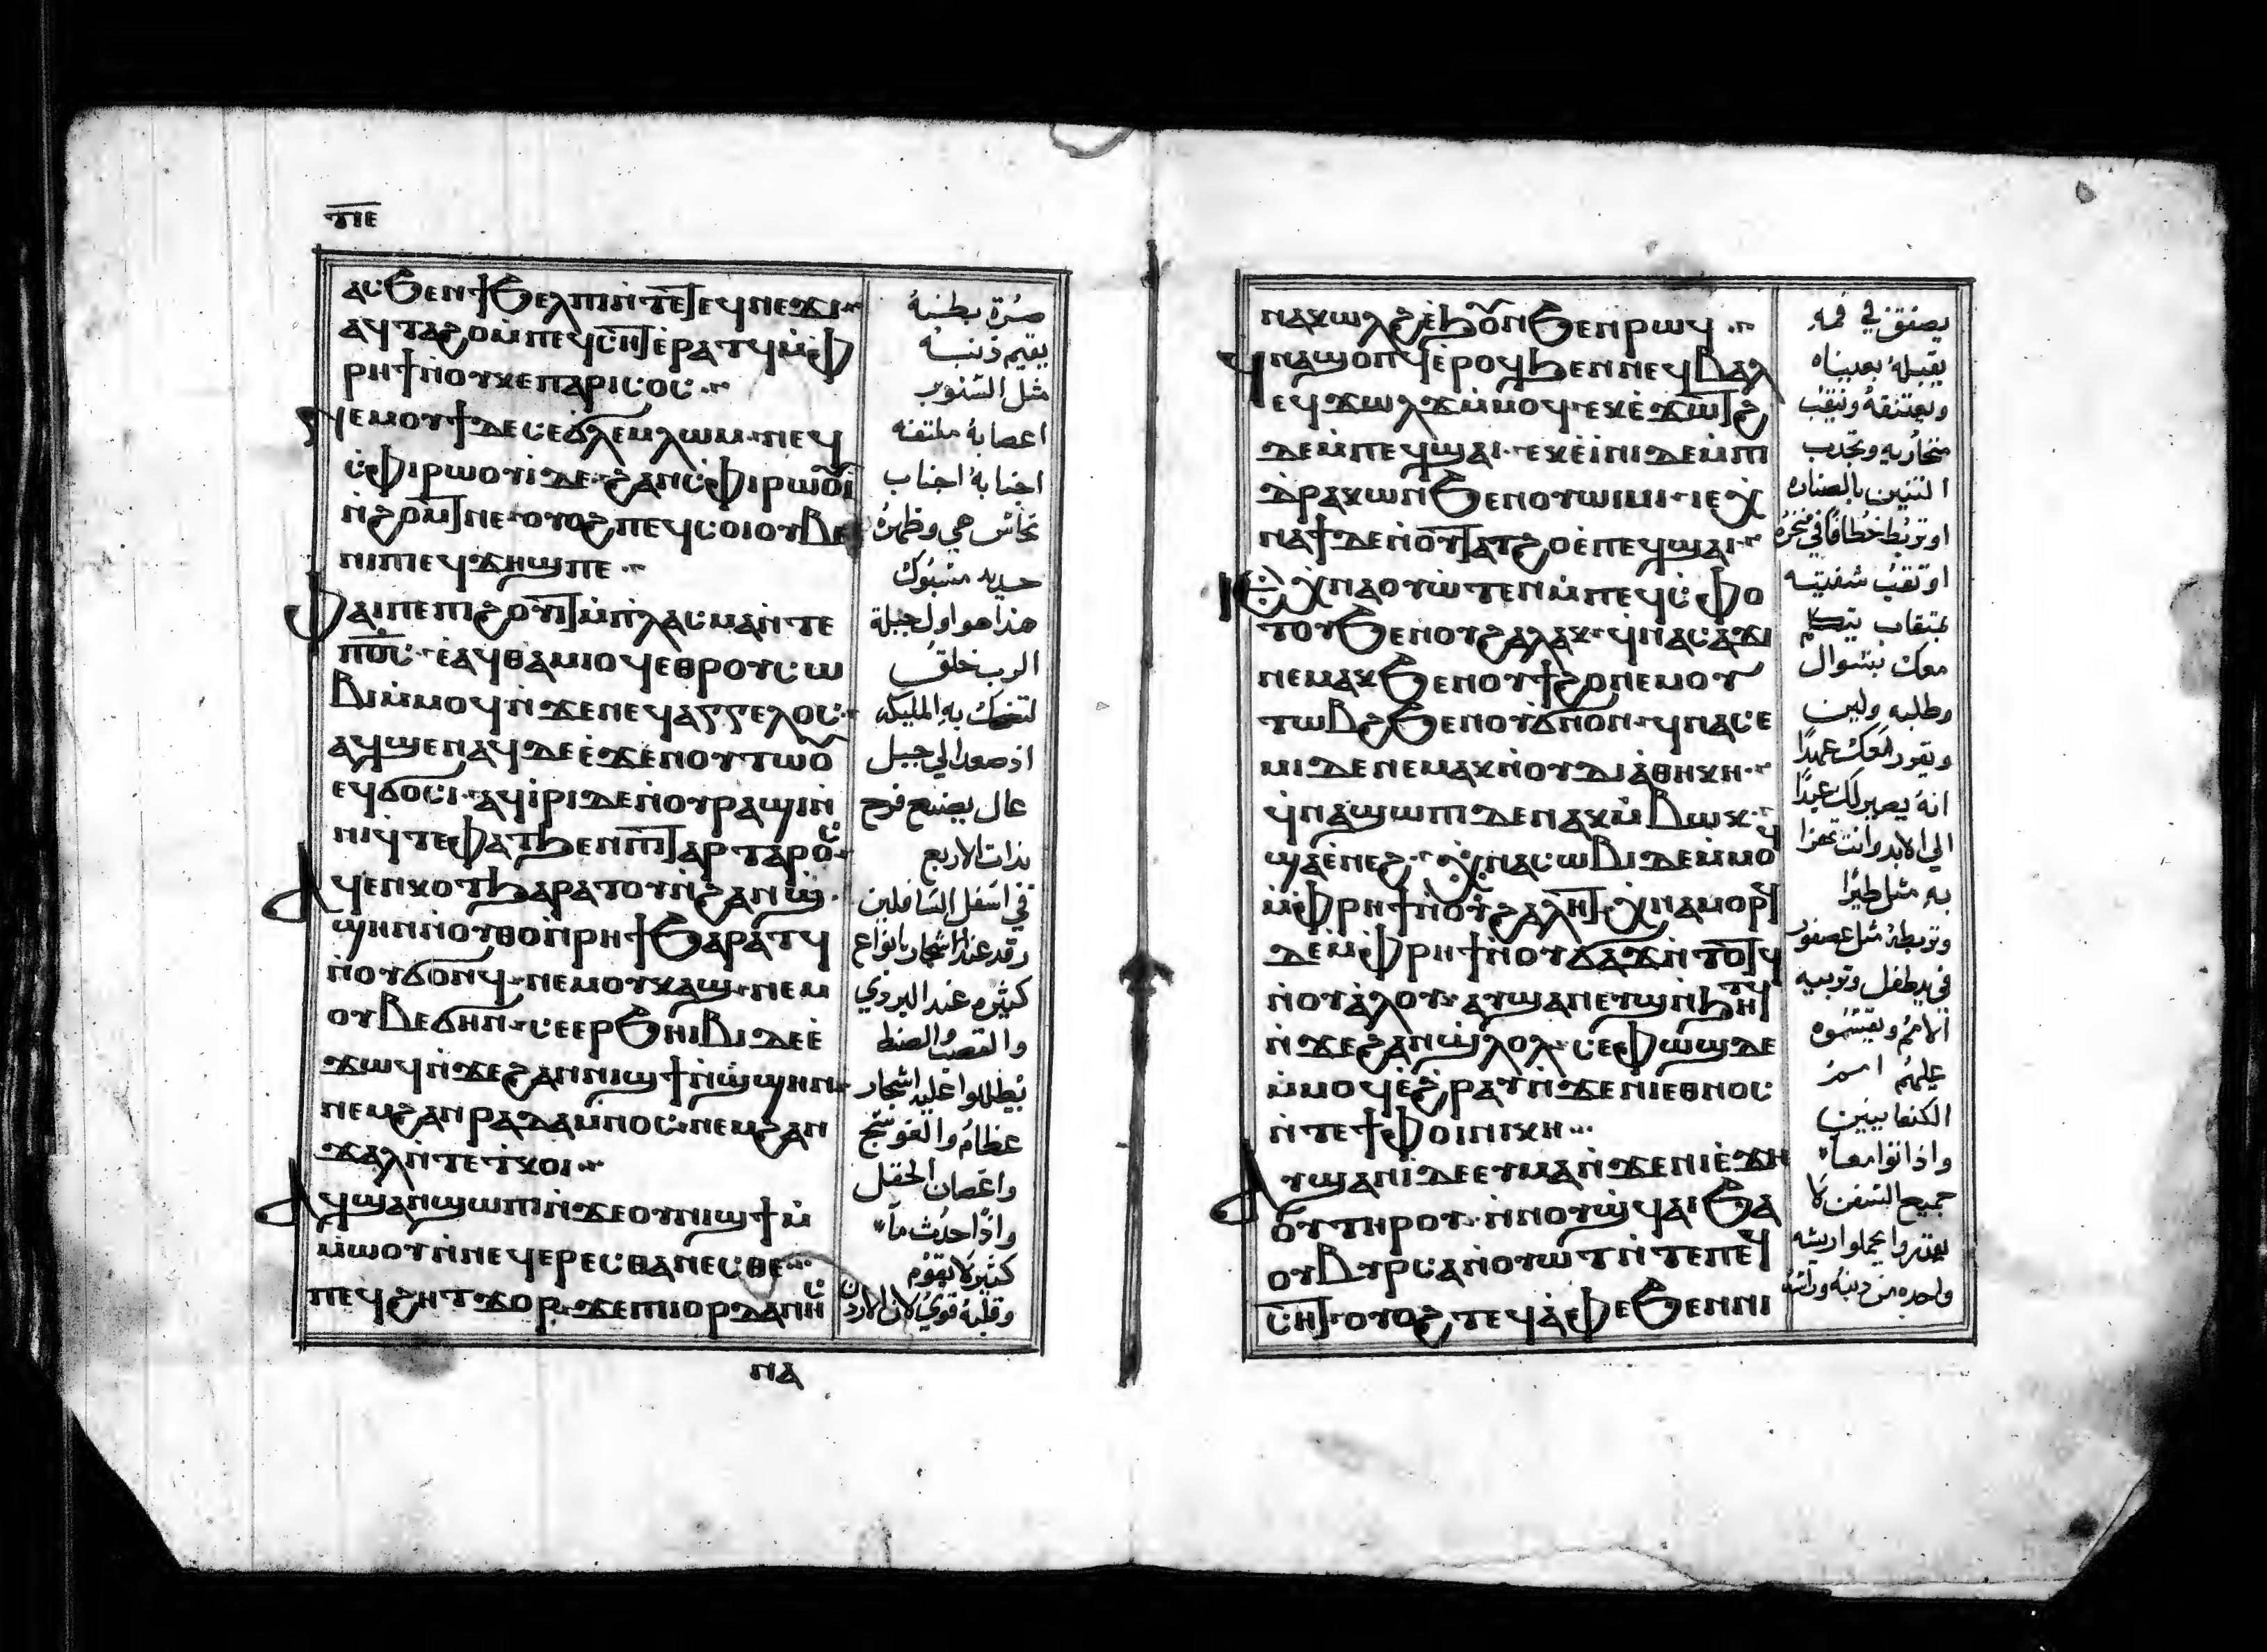 ⲧⲓⲉ
ⲁⲥϧⲉⲛϯϧⲉⲗⲡⲓⲛ̀ⲧⲉ ⲉϥⲛⲉϫⲓ
ⲁϥⲧⲁϩⲟⲙ̀ⲡⲉϥⲥⲏ ⲉ̀ⲣⲁⲧϥⲙ̀ⲫ
ⲣⲏϯⲛ̀ⲟⲩⲕⲉⲡⲁⲣⲓⲥⲟⲥ
ⲛⲉⲙⲟⲩϯⲇⲉⲥⲉϭⲗⲉⲙⲗⲱⲙ ⲛⲉϥ
ⲥ̀ⲫⲓⲣⲱⲟⲩⲓ̀ⲇⲉ ϩⲁⲛⲥ̀ⲫⲓⲣⲱⲟⲩⲓ
ⲛ̀ϩⲟⲙⲧ ⲛⲉ ⲟⲩⲟϩ ⲡⲉϥⲥⲟⲓ ⲟⲩⲃⲉ
ⲛⲓⲡⲓⲉϥϫⲏϣⲡⲉ
ⲫⲁⲓⲡⲉⲡⲓϩⲟⲩⲓⲧ ⲙ̀ⲡ̀ⲗⲁⲥⲙⲁⲛ̀ⲧⲉ
ⲡⲟ̅ⲥ̅ ⲉ̀ⲁϥⲑⲁⲙⲓⲟϥⲉⲑⲣⲟⲩⲥⲱ
ⲃⲓⲙ̀ⲙⲟϥⲛ̀ϫⲉⲛⲉϥⲁⲅⲅⲉⲗⲟⲥ
ⲁϥϣⲉⲛⲁϥⲇⲉⲉ̀ϫⲉⲛⲟⲩⲧⲱⲟⲩ
ⲉϥϭⲟⲥⲓ ⲁϥⲓ̀ⲣⲓⲇⲉⲛ̀ⲟⲩⲣⲁϣⲓⲛ̀
ⲛⲓϥ̀ⲧⲉⲫⲁⲧϧⲉⲛⲡⲓⲧⲁⲣⲧⲁⲣⲟⲥ
ⲁϥⲉⲛⲕⲟⲧϧⲁⲣⲁⲧⲟⲩⲛ̀ϩⲁⲛϣ̀
ϣⲏⲛⲛ̀ⲟⲩⲑⲟⲛ̀ⲣⲏϯϧⲁⲣⲁⲧϥ
ⲛ̀ⲟⲩϭⲟⲛϥ ⲛⲉⲙⲟⲩⲕⲁϣ ⲛⲉⲙ
ⲟⲩⲃⲉϭⲏⲛ ⲥⲉⲉⲣϧⲏⲓⲃⲓⲇⲉⲉ̀
ϫⲱϥⲛ̀ϫⲉϩⲁⲛⲛⲓϣϯⲛ̀ϣ̀ϣⲏⲛ
ⲛⲉⲙϩⲁⲛⲣⲁⲇⲁⲙⲛⲟⲥ ⲛⲉⲙϩⲁⲛ
ϫⲁⲗⲛ̀ⲧⲉⲧ̀ⲕⲟⲓ
ⲁϥϣⲁⲛϣⲱⲡⲓⲛ̀ϫⲉⲟⲩⲛⲓϣϯⲙ̀
ⲙ̀ⲙⲱⲟⲩⲛ̀ⲛⲉϥⲉⲣⲉⲥⲑⲁⲛⲉⲥⲑⲉ
ⲡⲉϥϩⲏⲧϫⲟⲣ ϫⲉⲡⲓⲓⲟⲣⲇⲁⲛⲏⲥ
ⲛⲁ
صُرّة بطنهُ
يقيم ذنبه
مثل السّنوبر
اعصابهُ ملتفه
اجنابهُ اجناب
نحاس هي وظهرهُ
حديد مسبوك
هذا هو اول جبلة
الرب خلقه
لتضحك به المليكه
اذ صعد الي جبل
عال يصنع فرح
لذات الاربع
في اسفل السّافلين
رقد عند اشجار بانواع
كثيره عند البردي
والقصب والصنط
يُظللوا عليه اشجار
عظام والعوسج
واغصان الحقل
واذا حدث ماً
كثير لا يقوم
وقلبهُ قويٌ لان الاردن
ⲛⲁⲕⲱⲗϩⲉ̀ϧⲟⲩⲛϧⲉⲛⲣⲱϥ
ϥⲛⲁϣⲟⲡϥⲉ̀ⲣⲟϥϧⲉⲛⲛⲉϥⲃⲁⲗ
ⲉϥϫⲱⲗϫⲙ̀ⲙⲟϥ ⲉⲕⲉ̀ϫⲱⲧϩ
ⲇⲉⲙ̀ⲡⲉϥϣⲁⲓ ⲉⲕⲉ̀ⲓ̀ⲛⲓⲇⲉⲙ̀ⲡⲓ
ⲇ̀ⲣⲁⲕⲱⲛϧⲉⲛⲟⲩⲱⲓⲙⲓ ⲓⲉⲭ̀
ⲛⲁϯⲇⲉⲛ̀ⲟⲩⲧⲁⲧϩⲟⲉ̀ⲡⲉϥϣⲁⲓ
ⲓⲉ ⲭ̀ⲛⲁⲟⲩⲱⲧⲉⲛⲙ̀ⲡⲉϥⲥ̀ⲫⲟ
ⲧⲟⲩϧⲉⲛⲟⲩϩⲁⲗⲁⲕ ϥⲛⲁⲥⲁϫⲓ
ⲛⲉⲙⲁⲕϧⲉⲛⲟⲩϯϩⲟⲛⲉⲙⲟⲩ
ⲧⲱⲃϩϧⲉⲛⲟⲩϭⲛⲟⲛ ϥⲛⲁⲥⲉ
ⲙⲓⲇⲉⲛⲉⲙⲁⲕⲛ̀ⲟⲩⲇⲓⲁ̀ⲑⲏⲕⲏ
ϥ̀ⲛⲁϣⲱⲡⲓⲇⲉⲛⲁⲕⲙ̀ⲃⲱⲕ
ϣⲁⲉ̀ⲛⲉϩ ⲭ̀ⲛⲁⲥⲱⲃⲓⲇⲉⲙ̀ⲙⲟϥ
ⲙ̀ⲫⲣⲏϯⲛ̀ⲟⲩϩⲁⲗⲏⲧ ⲭ̀ⲛⲁⲙⲟⲣϥ
ⲇⲉⲙ̀ⲫⲣⲏϯⲛ̀ⲟⲩϭⲁϫⲛ̀ⲧⲟⲧϥ
ⲛ̀ⲟⲩⲁ̀ⲗⲟⲩ ⲁⲩϣⲁⲛⲉⲩϣⲛ̀ϧⲏⲧϥ
ⲛ̀ϫⲉϩⲁⲛϣ̀ⲗⲟⲗ ⲥⲉⲫⲱϣⲇⲉ
ⲙ̀ⲙⲟϥⲉ̀ϩⲣⲁⲩⲛ̀ϫⲉⲛⲓⲉⲑⲛⲟⲥ
ⲛ̀ⲧⲉϯⲫⲟⲓⲛⲓⲕⲏ
ⲁⲩϣⲁⲛⲓ̀ⲇⲉⲉⲩⲙⲁⲛ̀ϫⲉⲛⲓⲉ̀ϫⲏ
ⲟⲩⲧⲏⲣⲟⲩ ⲛ̀ⲛⲟⲩϣ̀ϥⲁⲓϧⲁ
ⲟⲩⲃⲩⲣⲥⲁⲛ̀ⲟⲩⲱⲧⲛ̀ⲧⲉⲡⲉϥ
ⲥⲏⲧ ⲟⲩⲟϩ ⲧⲉϥⲁ̀ⲫⲉϧⲉⲛⲛⲓ
يصفق في فمهِ
يقبلهُ بعيناه
ويعتنقهُ وتثقب
منخاريه وتجذب
التنين بالصناره
او تربُط خُطافًا في منخره
او تثقب شفتيه
بمثقاب
معك بسُوال
وطلبه ولين
ويقرر معك عهدًا
انهُ يصير لك عبدًا
الي الابد وانت تهزا
به مثل طيرًا
وتربطهُ مثل عصفور
في يد طفل وتربيه
الامم ويقتسموه
عليهم امم
الكنعانيين
واذا اتوا معاً
جميع السُفن لا
يقدروا يحملوا
واحده من ذنبهُ وراسه